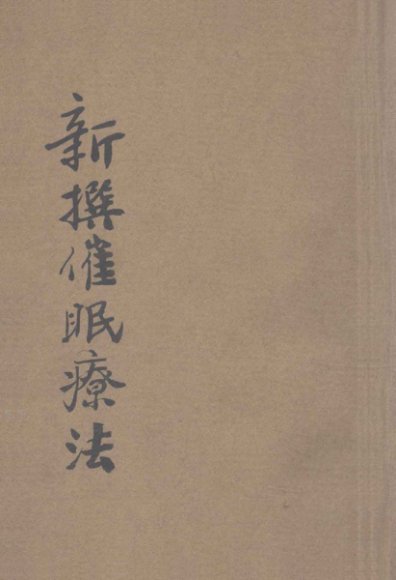 新撰催眠療法